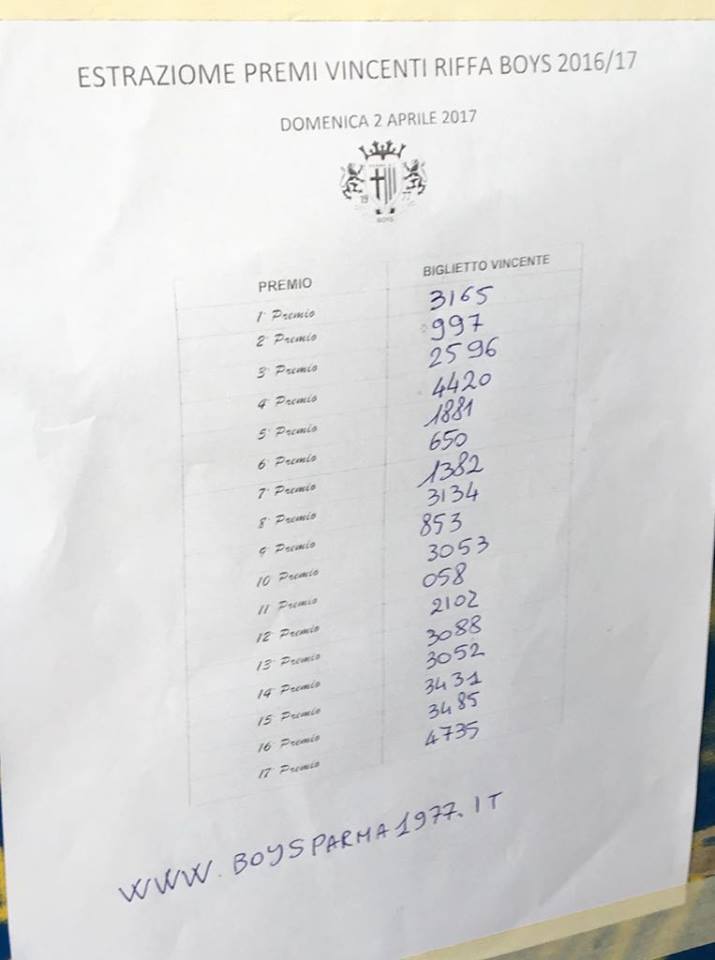 ESTRAZIOME PREMI VINCENTI RIFFA BOYS 2016/17
DOMENICA 2 APRILE 2017
19 77
BOYS
PREMIO BIGLIETTO VINCENTE
1° Premio 3165
2° Premio 997
3° Premio 2596
4° Premio 4420
5° Premio 1881
6° Premio 650
7° Premio 1382
8° Premio 3134
9° Premio 853
10 Premio 3053
11 Premio 058
12 Premio 2102
13 Premio 3088
14 Premio 3052
15 Premio 3431
16 Premio 3485
17 Premio 4735
WWW.BOYSPARMA1977.IT